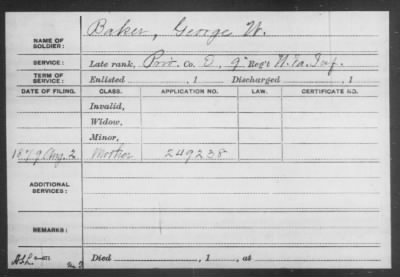 NAME OF SOLDIER: Baker, George W.
SERVICE: Late rank, Priv. Co. E, 9" Reg't W. Va. Inf.
TERM OF SERVICE: Enlisted , 1 Discharged , 1
DATE OF FILING. CLASS. APPLICATION NO. LAW. CERTIFICATE NO.
Invalid,
Widow,
Minor,
1879 Aug. 2 Mother 249238
ADDITIONAL SERVICES:
REMARKS:
Died , 1 , at